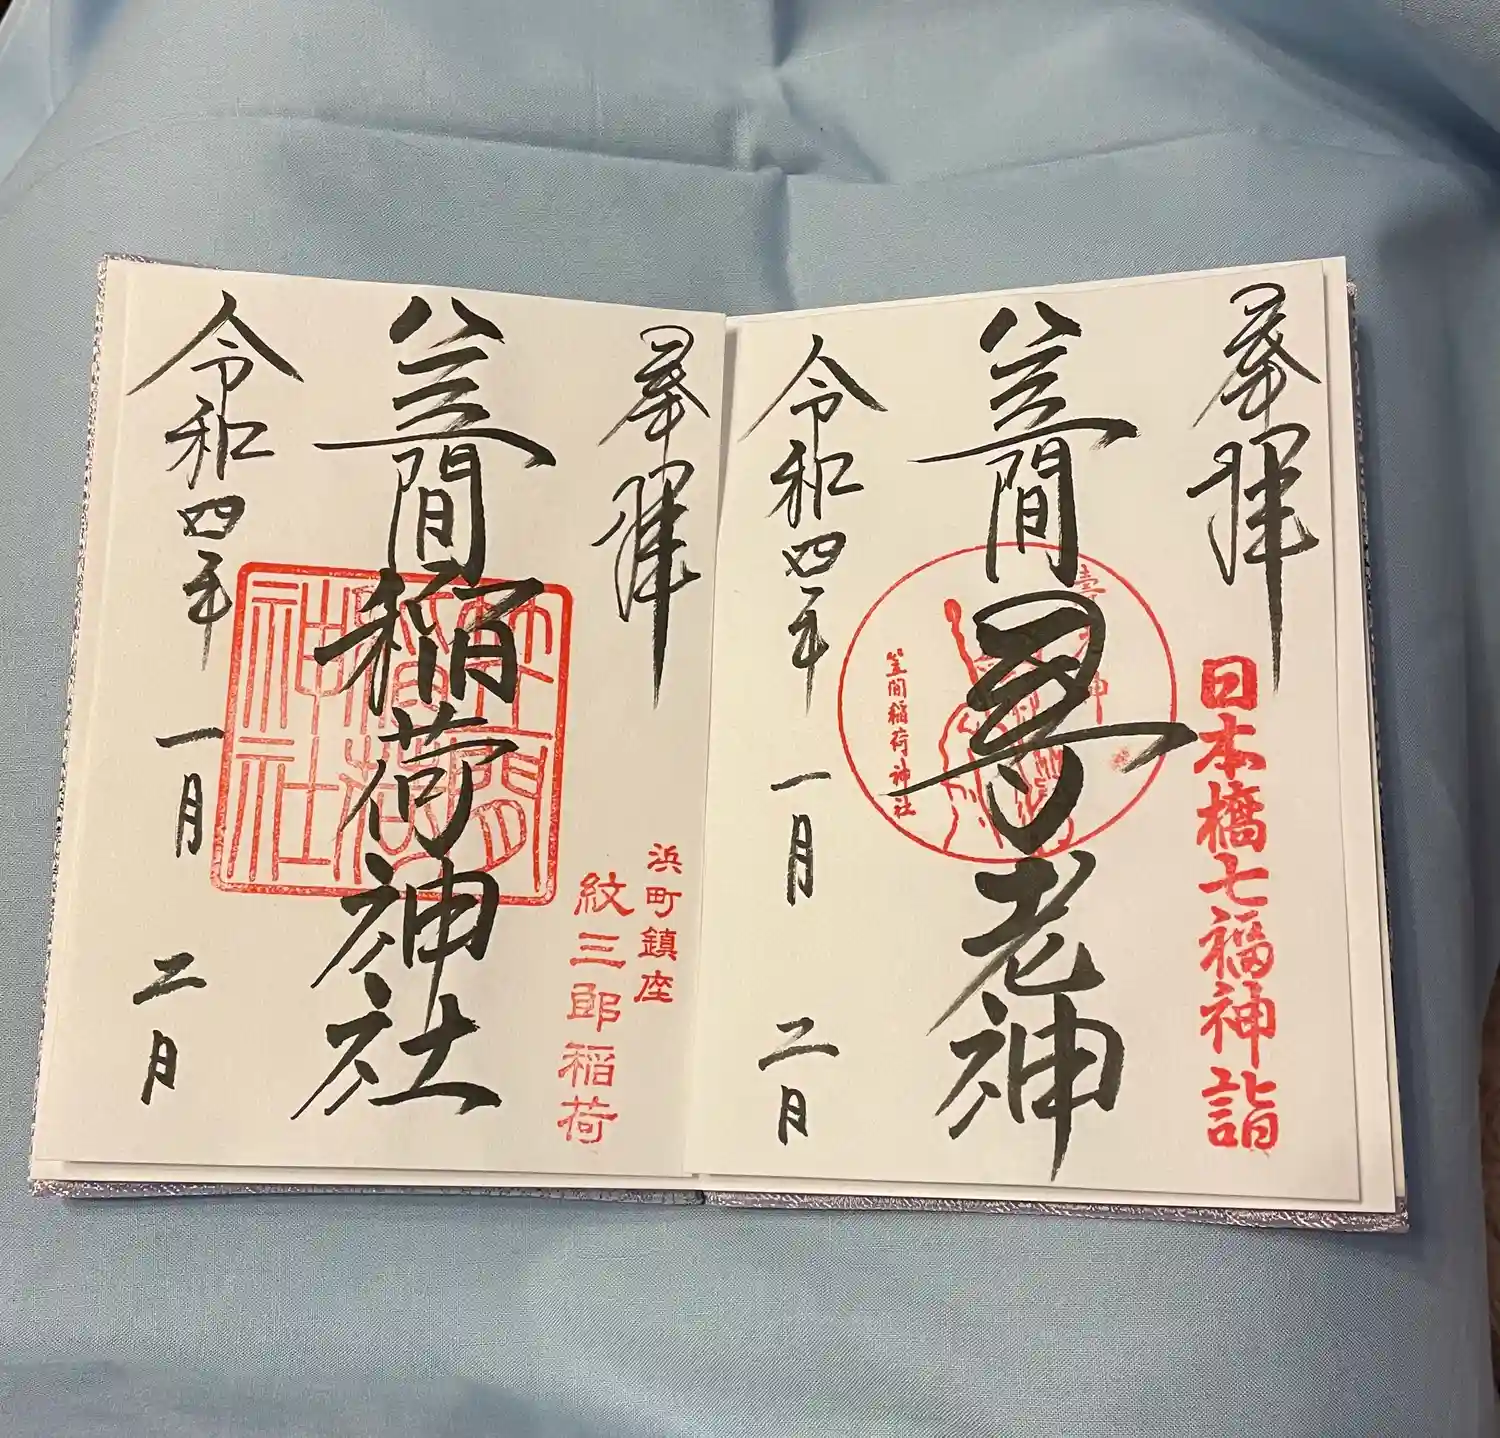 奉拝
日本橋七福神詣
笠間寿老神
笠間稲荷神社
令和四年 一月 二日
奉拝
浜町鎮座
紋三郎稲荷
笠間稲荷神社
笠間稲荷神社
令和四年 一月 二日